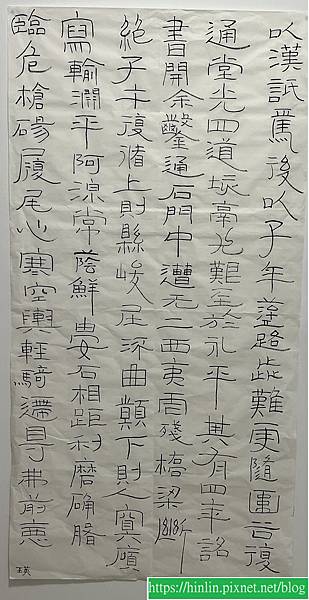 以漢詆焉後以子午塗路歰難更隨圍谷復
通堂光四道垓鬲尤難至於永平其有四年詔
書開余鑿通石門中遭元二西夷虐殘橋梁斷
絕子午復循上則縣峻屈流曲顛下則入冥廎
寫輸淵平阿湶常蔭鮮晏石相距利磨确
臨危槍碭履尾心寒空輿輕騎遰㝵弗前惡
https://hinlin.pixnet.net/blog